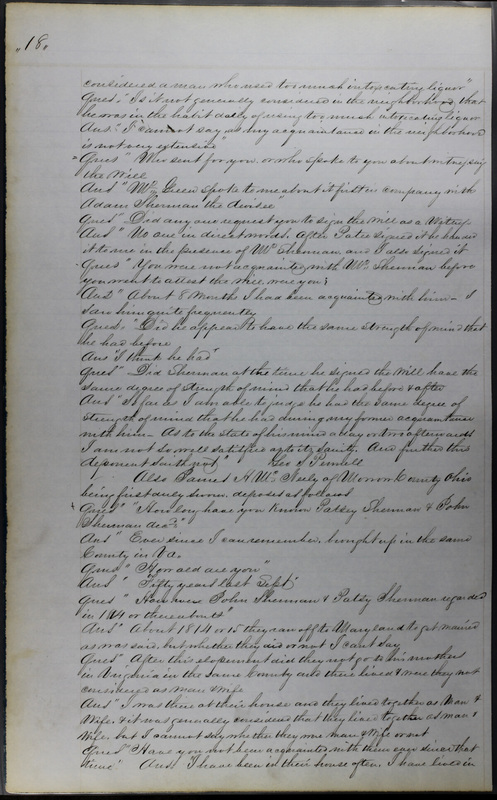 "18"
considered a man who used too much intoxicating liquor"
Ques" Is it not generally considered in the neighborhood that
he was in the habit daily of using too much intoxicating liquor
Ans" I cannot say as my acquaintance in the neighborhood
is not very extensive"
Ques" Who sent for you, or who spoke to you about witnessing
the Will
Ans" Mr Green spoke to me about it first in company with
Adam Sherman the devisee"
Ques" Did any one request you to sign the Will as a Witness
Ans" No one in direct words. After Patie signed it he handed
it to me in the presence of Mr Sherman and I also signed it
Ques" You were not acquainted with Mr Sherman before
you went to attest the Will were you;
Ans" About 8 Months I had been acquainted with him - I
saw him quite frequently
Ques" Did he appear to have the same strength of mind that
he had before
Ans "I think he had"
Ques" Did Sherman at the time he signed the Will have the
same degree of strength of mind that he had before & after
Ans" So far as I am able to judge he had the same degree of
strength of mind that he had during my former acquaintance
with him - As to the state of his mind a day or two afterwards
I am not so well satisfied as to its sanity. And further this
deponent saith not" Geo S Pennell
Also James H Wm Neely of Morrow County Ohio
being first duly sworn deposes as follows
Ques" "How long have you known Patsey Sherman & John
Sherman decd"
Ans" Ever since I can remember, brought up in the same
County in Va.
Ques" How old are you"
Ans" Fifty years last Sept"
Ques" How were John Sherman & Patsy Sherman regarded
in 1814 or thereabouts"
Ans" About 1814 or 15 they ran off to Maryland to get married
as was said, but whether they did or not I cant say
Ques" After this elopement did they not go to his mothers
in Virginia in the same County and there lived & were they not
considered as Man & wife
Ans" I was there at their house and they lived together as Man &
Wife & it was generally considered that they lived together as man &
Wife, but I cannot say whether they were man & Wife or not
Ques" Have you not been acquainted with them ever since that
time" Ans" I have been in their house often, I have lived in